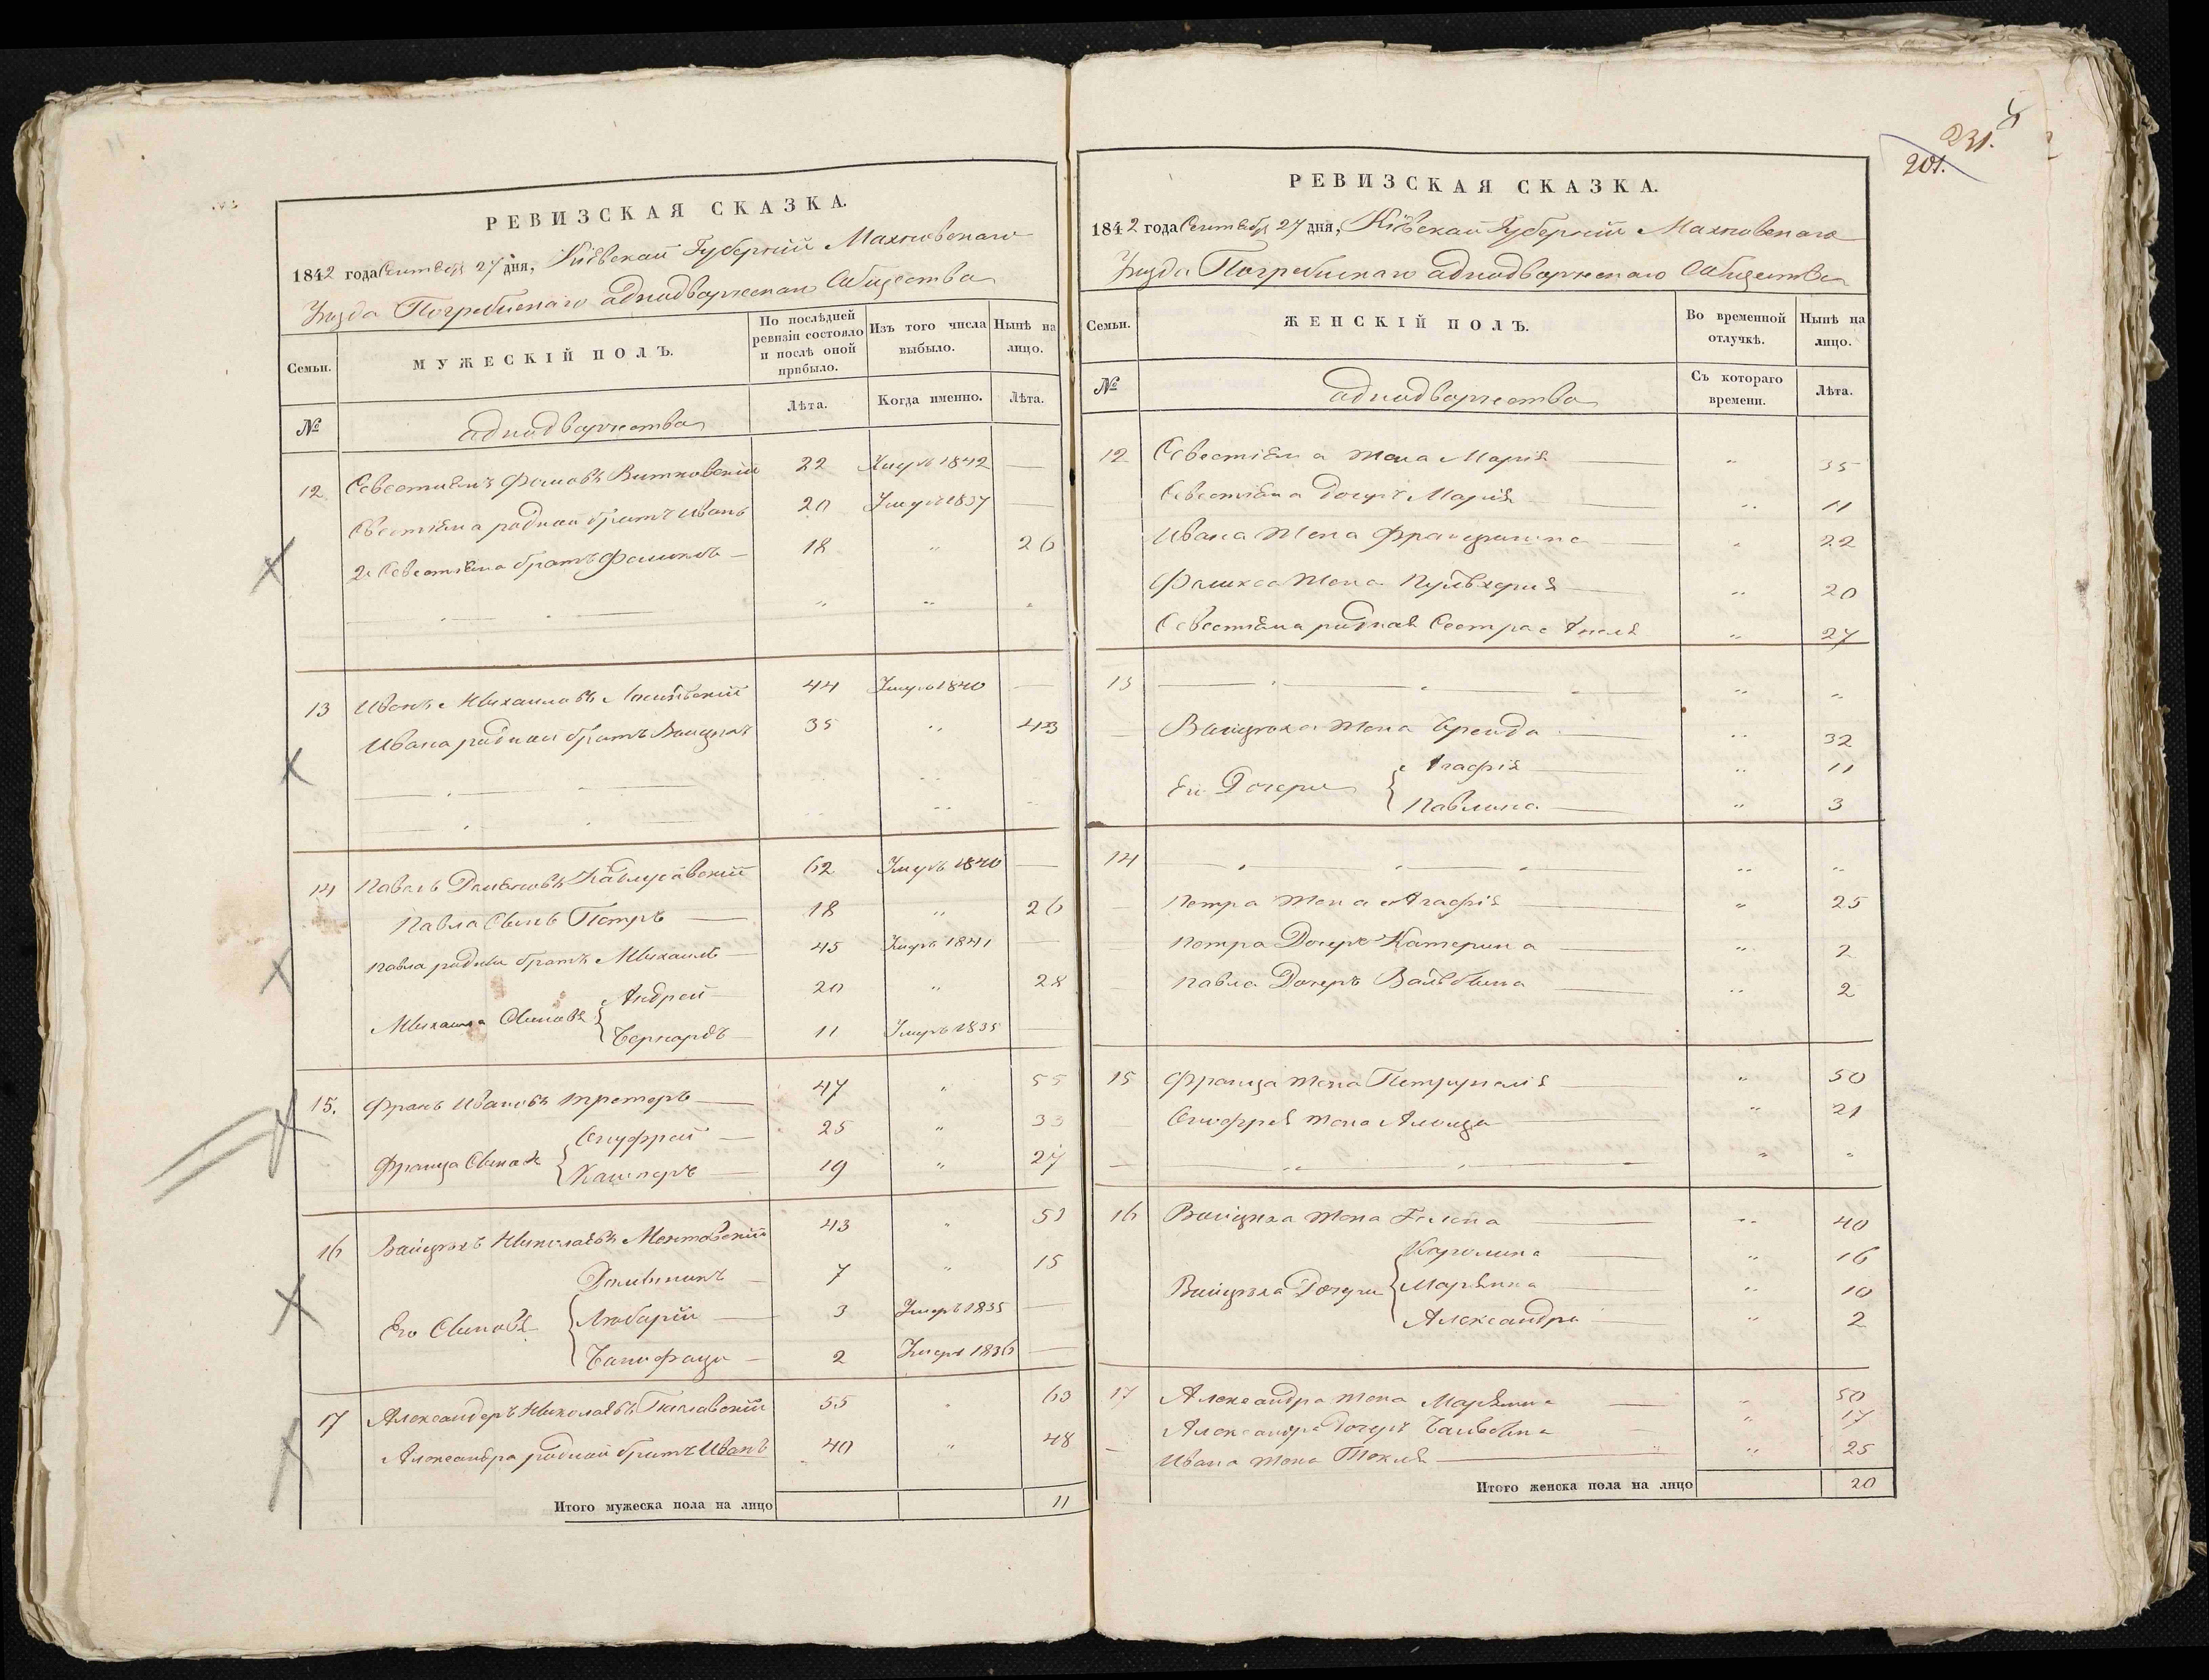 РЕВИЗСКАЯ СКАЗКА.
1842 года Сентебря 27 дня, Кіевскай Губерніи Махновскаго
Уезда Погребискаго аднодворческаго Общества
Семьи.
МУЖЕСКІЙ ПОЛЪ.
По послѣдней ревизіи состояло и послѣ оной прибыло.
Изъ того числа выбыло.
Нынѣ на лицо.
№
аднодворчества
Лѣта.
Когда именно.
Лѣта.
12 Севестиянъ Фомовъ Витковскій 22 Умеръ 1842 —
Севестіяна роднои братъ Иванъ 20 Умеръ 1837 —
2й Севестіяна братъ Феликсъ — 18 „ 26
„ „ „
13 Иванъ Михаиловъ 44 Умеръ 1840 —
Ивана роднои братъ Воицехъ 35 „ 43
14 Павелъ Домяновъ 62 Умеръ 1840 —
Павла Сынъ Петръ — 18 „ 26
Павла родны братъ Михаилъ — 45 Умеръ 1841 —
Михаила Сыновя { Андрей — 20 „ 28
Бернардъ — 11 Умеръ 1835 —
15. Францъ Ивановъ Третеръ — 47 „ 55
Франца Сыновя { Онуфрей — 25 „ 33
Кашперъ — 19 „ 27
16 Войцехъ Николаевъ 43 „ 51
Доминикъ — 7 „ 15
Его Сыновя { Либарій — 3 Умеръ 1835 —
Банифаци — 2 Умеръ 1836 —
17 Александеръ Николаевъ 55 „ 63
Александра роднои братъ Иванъ 40 „ 48
Итого мужеска пола на лицо 11
231.
201.
РЕВИЗСКАЯ СКАЗКА.
1842 года Сентебря 27 дня, Кіевскай Губерніи Махновскаго
Уезда Погребискаго аднодворческаго Общества
Семьи.
ЖЕНСКІЙ ПОЛЪ.
Во временной отлучкѣ.
Нынѣ на лицо.
№
аднодворчества
Съ котораго времени.
Лѣта.
12 Севестіяна жена Марія — „ 35
Севестіяна дочеръ Марія — „ 11
Ивана жена Францишка — „ 22
Феликса жена Пулѣхерия — „ 20
Севестіяна родная Сестра Анеля „ 27
13 — „ „
Воицеха жена Бреида — „ 32
Ег Дочери { Агафія — „ 11
Павлина — „ 3
14 — „ „
Петра жена Агафія — „ 25
Петра Дочеръ Катерина — „ 2
Павла Дочеръ Балбина — „ 2
15 Франца жена Петрунеля — „ 50
Онофрея жена Алоиза — „ 21
— „ „
16 Воицеха жена Гелена — „ 40
Каролина — „ 16
Воицеха Дочери { Марянна — „ 10
Александра — „ 2
17 Александра жена Марянна — „ 50
Александра дочеръ Балбина — „ 17
Ивана жена Текля — „ 25
Итого женска пола на лицо 20